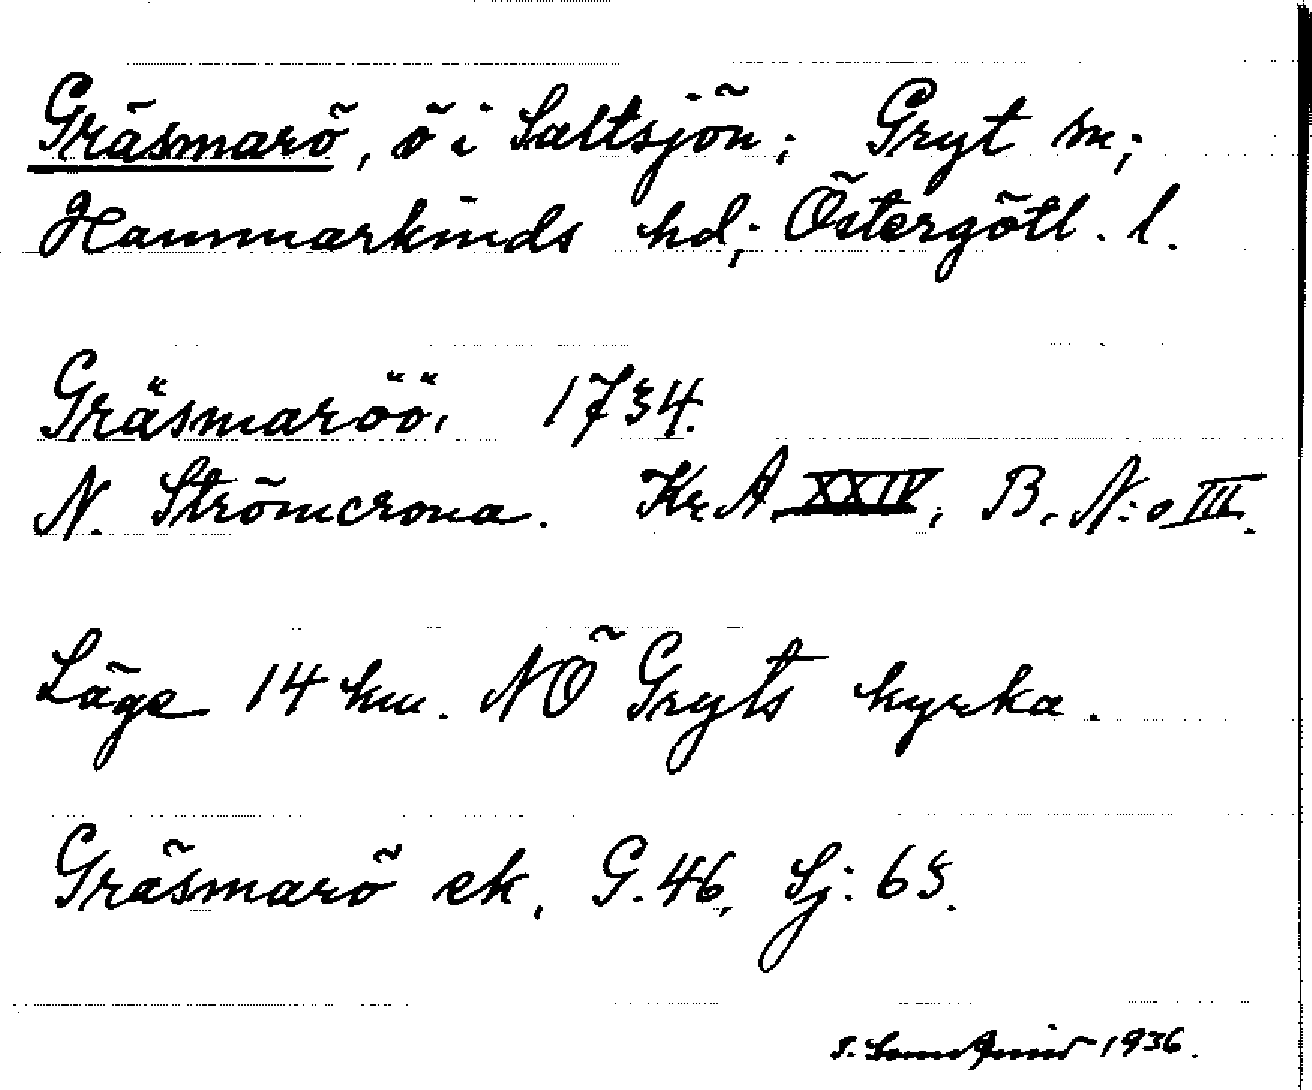 Gräsmarö, ö i Saltsjön; Gryt sn;
Hammarkinds hd; Östergötl. l.
Gräsmaröö, 1734.
N. Strömcrona. Kr. A. XXIV, B. N:o III.
Läge 14 km. NÖ Gryts kyrka.
Gräsmarö ek. G. 46, Sj: 65.
1936.